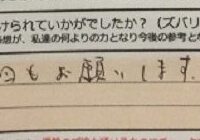 けられていかがでしたか？（ズバリ
想が、私達の何よりの力となり今後の参考とな
もお願いします。